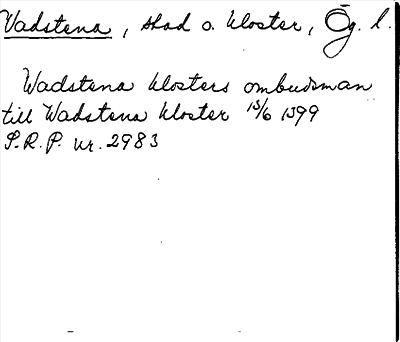 Vadstena, stad o. kloster, Ög. l.
Wadstena klosters ombudsman
till Wadstena kloster 15/6 1399
S.R.P. nr. 2983